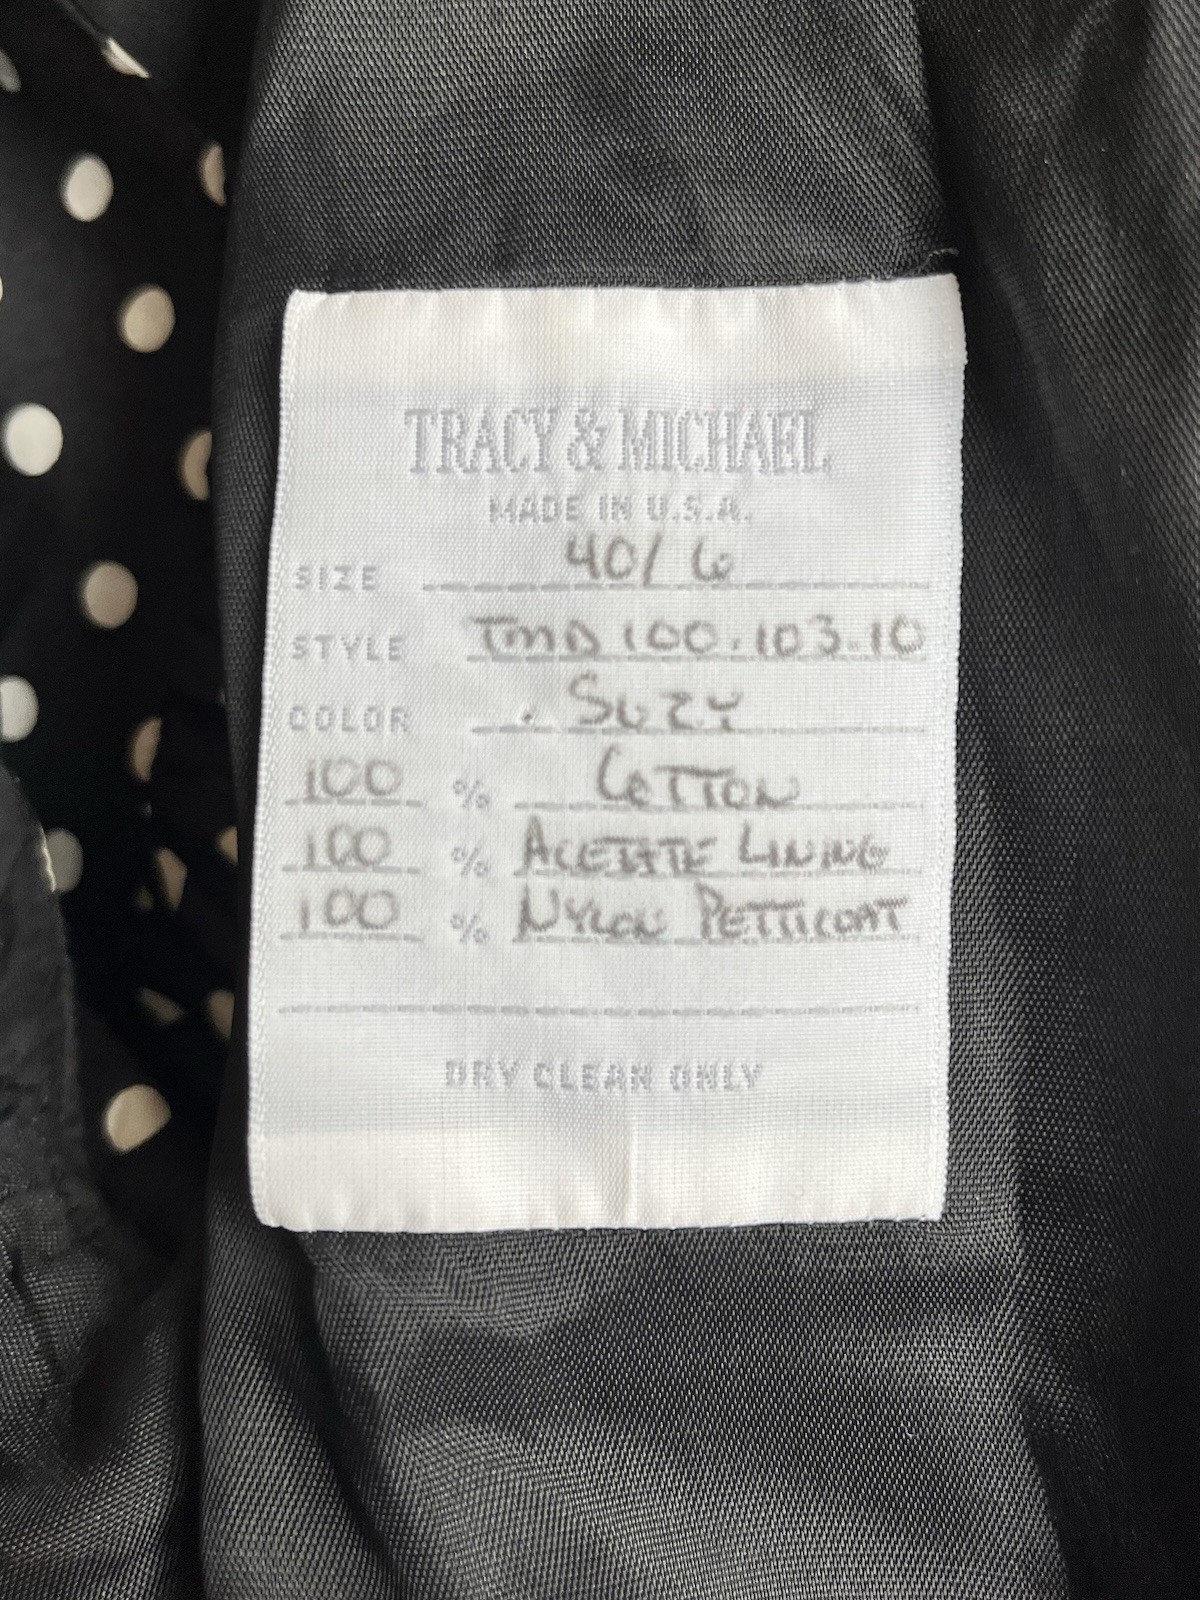 TRACY & MICHAEL
MADE IN U.S.A.
SIZE 40/6
STYLE TMD 100.103.10
COLOR . SUZY
100 % COTTON
100 % ACETATE LINING
100 % NYLON PETTICOAT
DRY CLEAN ONLY